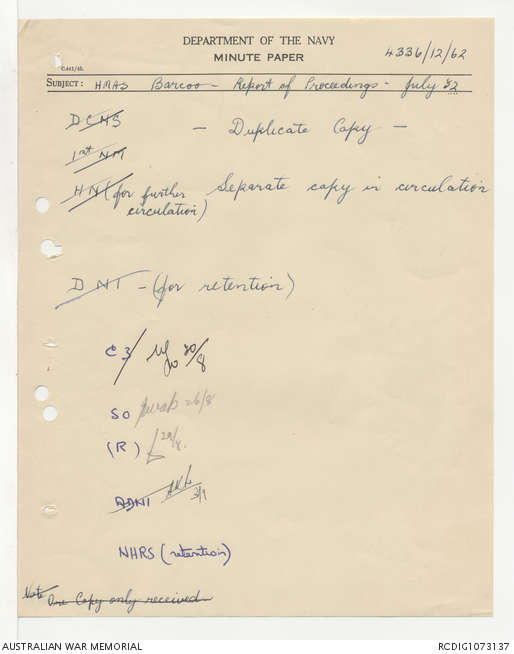 DEPARTMENT OF THE NAVY
MINUTE PAPER
4336/12/62
C.441/45.
SUBJECT: HMAS Barcoo - Report of Proceedings - July 52
DCNS - Duplicate Copy -
1st NM
HN (for further Separate copy in circulation
circulation)
DNI - (for retention)
C3/ 20/8
SO 26/8
(R) 28/8.
ADNI 2/9
NHRS (retention)
Note One Copy only received
AUSTRALIAN WAR MEMORIAL RCDIG1073137